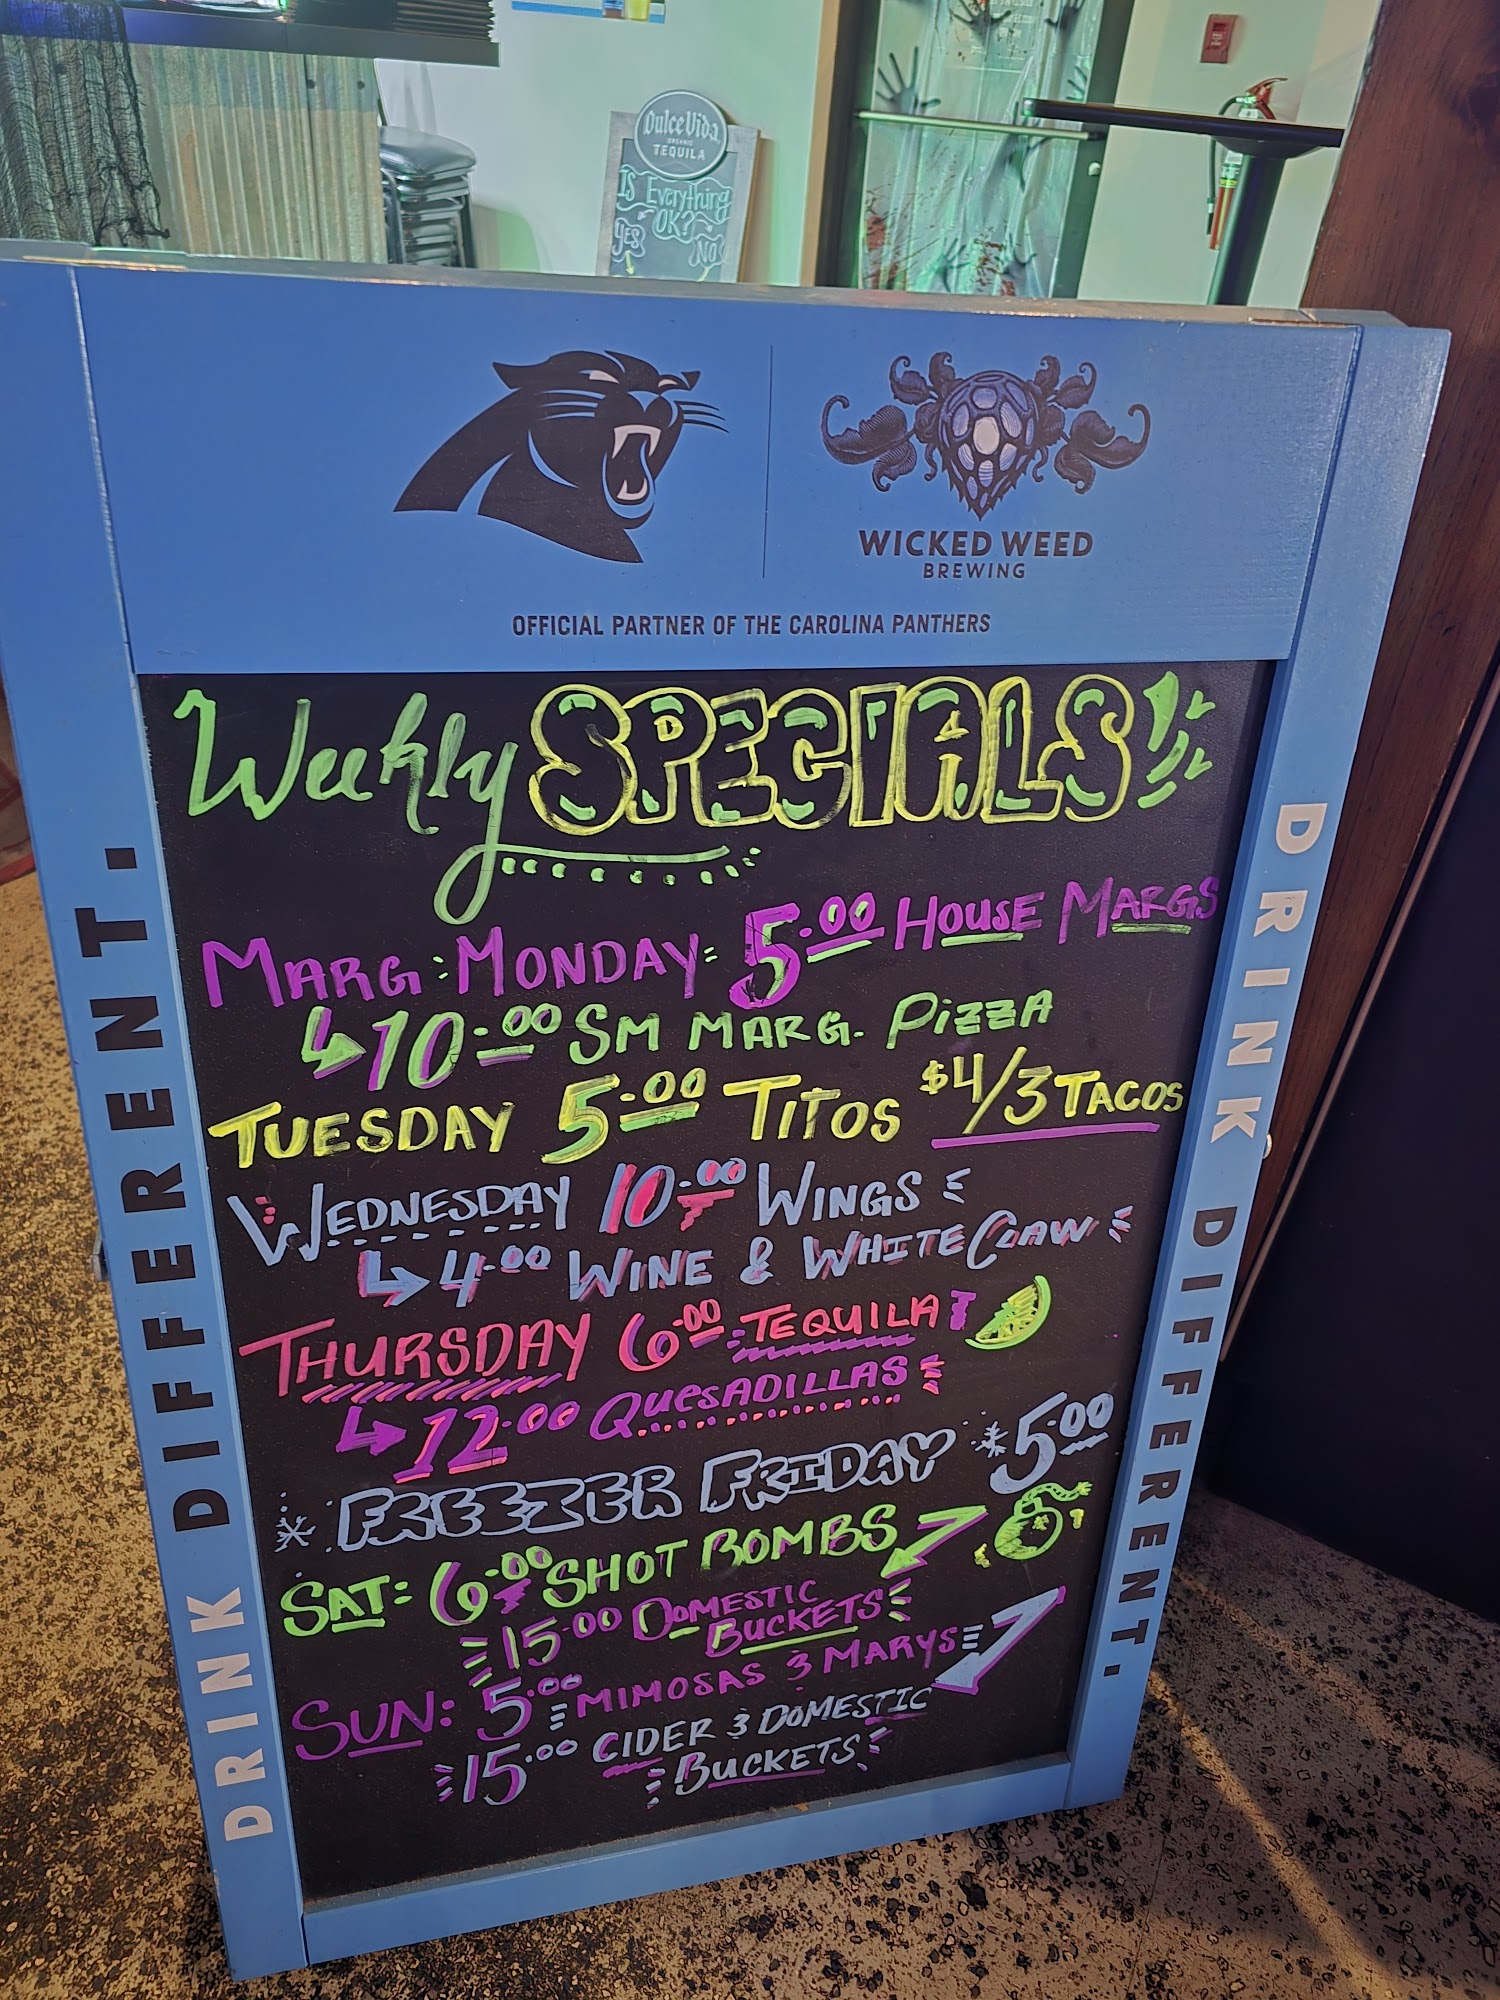 Dulce Vida
ORGANIC
TEQUILA
IS Everything
OK?
YES NO
WICKED WEED
BREWING
OFFICIAL PARTNER OF THE CAROLINA PANTHERS
Weekly SPECIALS!
MARG MONDAY: 5.00 HOUSE MARGS
10.00 SM MARG. PIZZA
TUESDAY 5.00 TITOS $4/3 TACOS
WEDNESDAY 10.00 WINGS
4.00 WINE & WHITE CLAW
THURSDAY 6.00 TEQUILA
12.00 QUESADILLAS
FREEZER FRIDAY 5.00
SAT: 6.00 SHOT BOMBS
15.00 DOMESTIC
BUCKETS
SUN: 5.00 MIMOSAS & MARYS
15.00 CIDER & DOMESTIC
BUCKETS
DRINK DIFFERENT.
DRINK DIFFERENT.